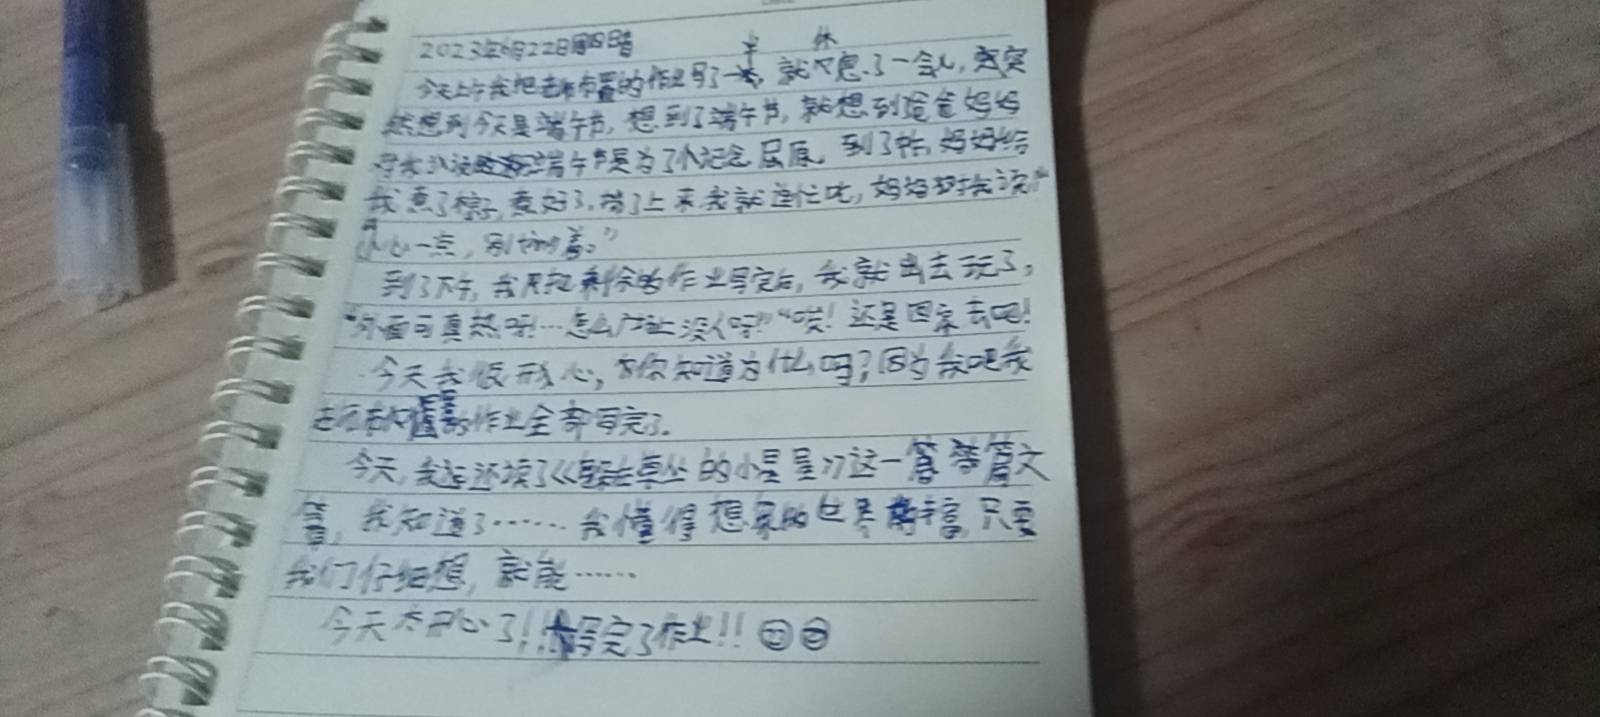 2023年6月22日周四晴
今天上午我把老师布置的作业写了一半,就休息了一会儿,突突
然想到今天是端午节,想到了端午节,就想到爸爸妈妈
对我说端午节是为了纪念屈原,到了中午,妈妈给
我煮了粽子,煮好了,捞了上来我就连忙吃,妈妈对我说"
"小心一点,别烫着。"
到了下午,我再把剩余的作业写完后,我就出去玩了,
"外面可真热呀!…怎么广场上没人呀?""唉!还是回家去吧!
今天我很开心,你知道为什么吗?因为我吧我
老师布置的作业全部写完了。
今天,我还读了《 的小星星》这一篇文
章,我知道了……我懂得想象的世界丰富,只要
我们仔细想,就能……
今天太开心了!!写完了作业!!